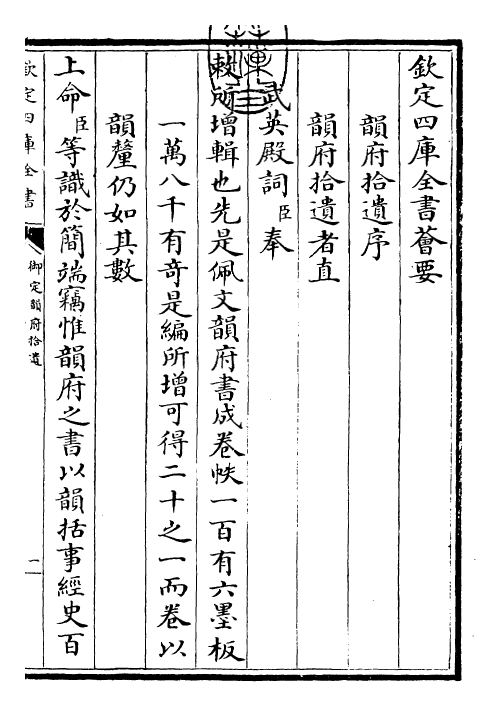 欽定四庫全書薈要
韻府拾遺序
韻府拾遺者直
武英殿詞臣奉
敕所增輯也先是佩文韻府書成卷帙一百有六墨板
一萬八千有奇是編所增可得二十之一而卷以
韻釐仍如其數
上命臣等識於簡端竊惟韻府之書以韻括事經史百
欽定四庫全書
御定韻府拾遺
一